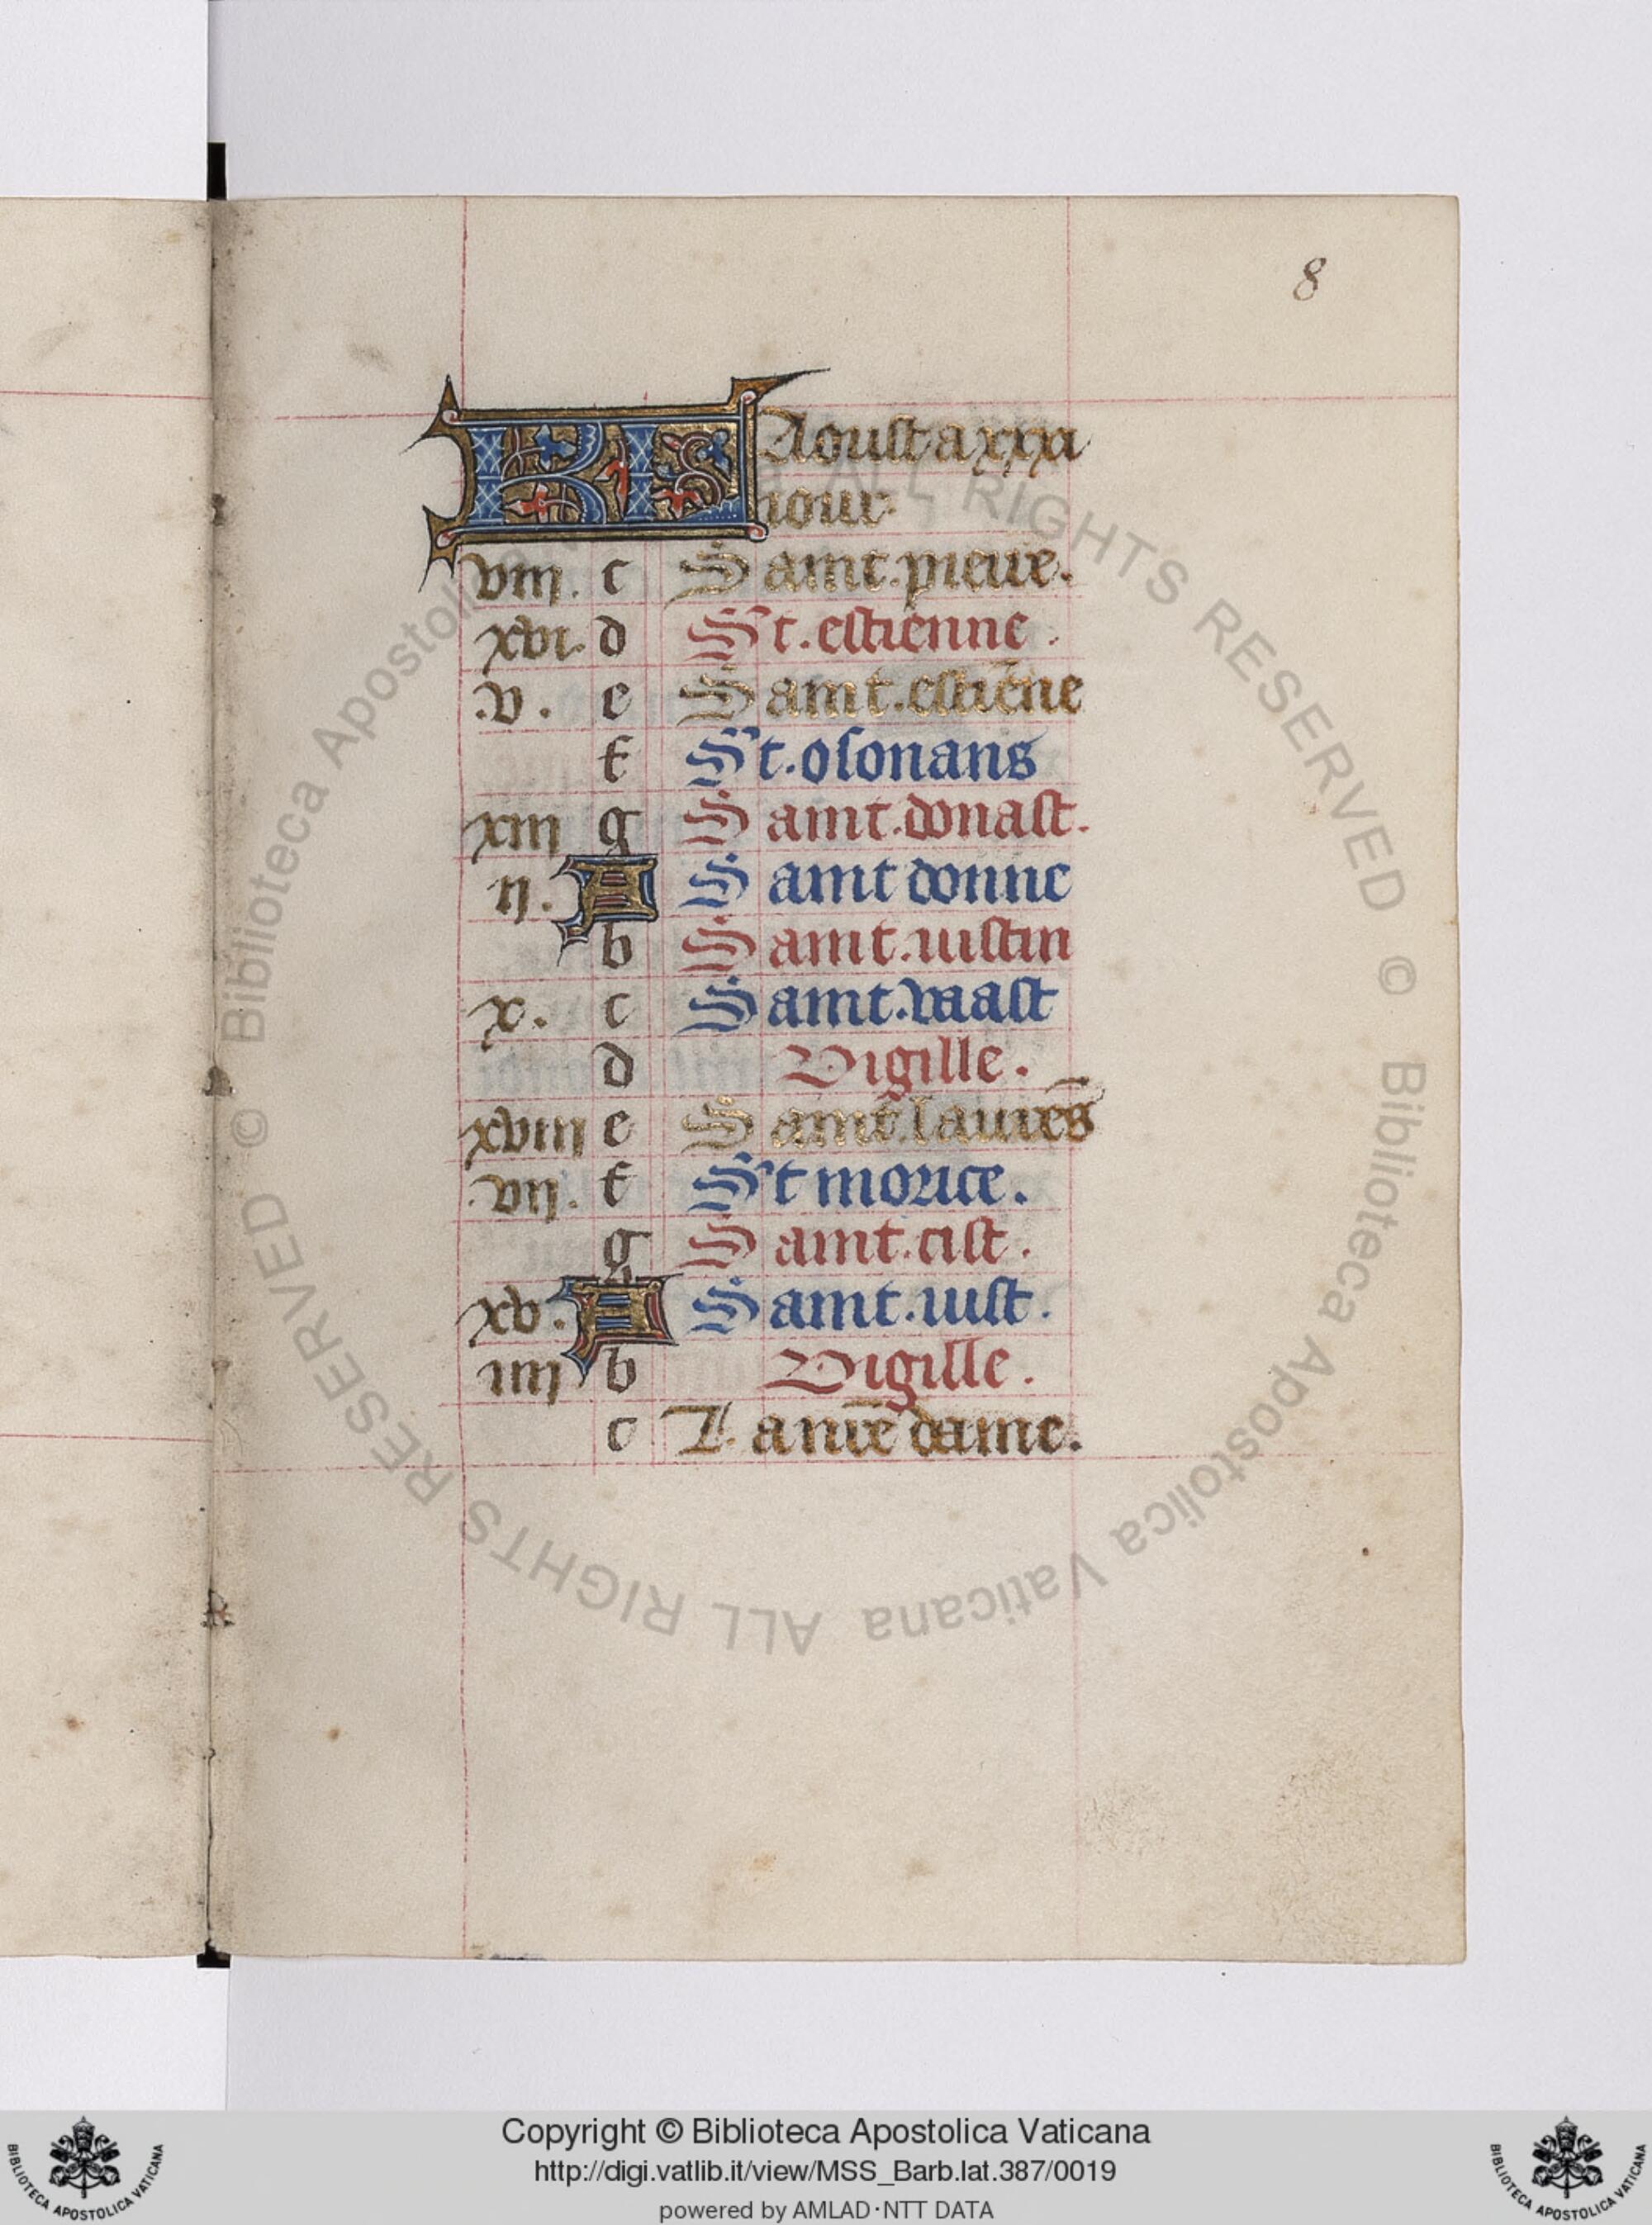 8
Kl Aoust a xxxi
iour
viii. c Saint. pierre.
xvi. d St. estienne.
.v. e Saint. estiēne
f St. osonans
xiii g Saint. donast.
ii. A Saint donne
b Saint. iustin
x. c Saint. vaast
d Vigille.
xviii e Saint. laurēs
.vii. f St morice.
g Saint. cist.
xv. A Saint. iust.
iiii b Vigille.
c La nr̄e dame.
© Biblioteca Apostolica Vaticana ALL RIGHTS RESERVED © Biblioteca Apostolica Vaticana ALL RIGHTS RESERVED
Copyright © Biblioteca Apostolica Vaticana
http://digi.vatlib.it/view/MSS_Barb.lat.387/0019
powered by AMLAD·NTT DATA
BIBLIOTECA APOSTOLICA VATICANA
BIBLIOTECA APOSTOLICA VATICANA